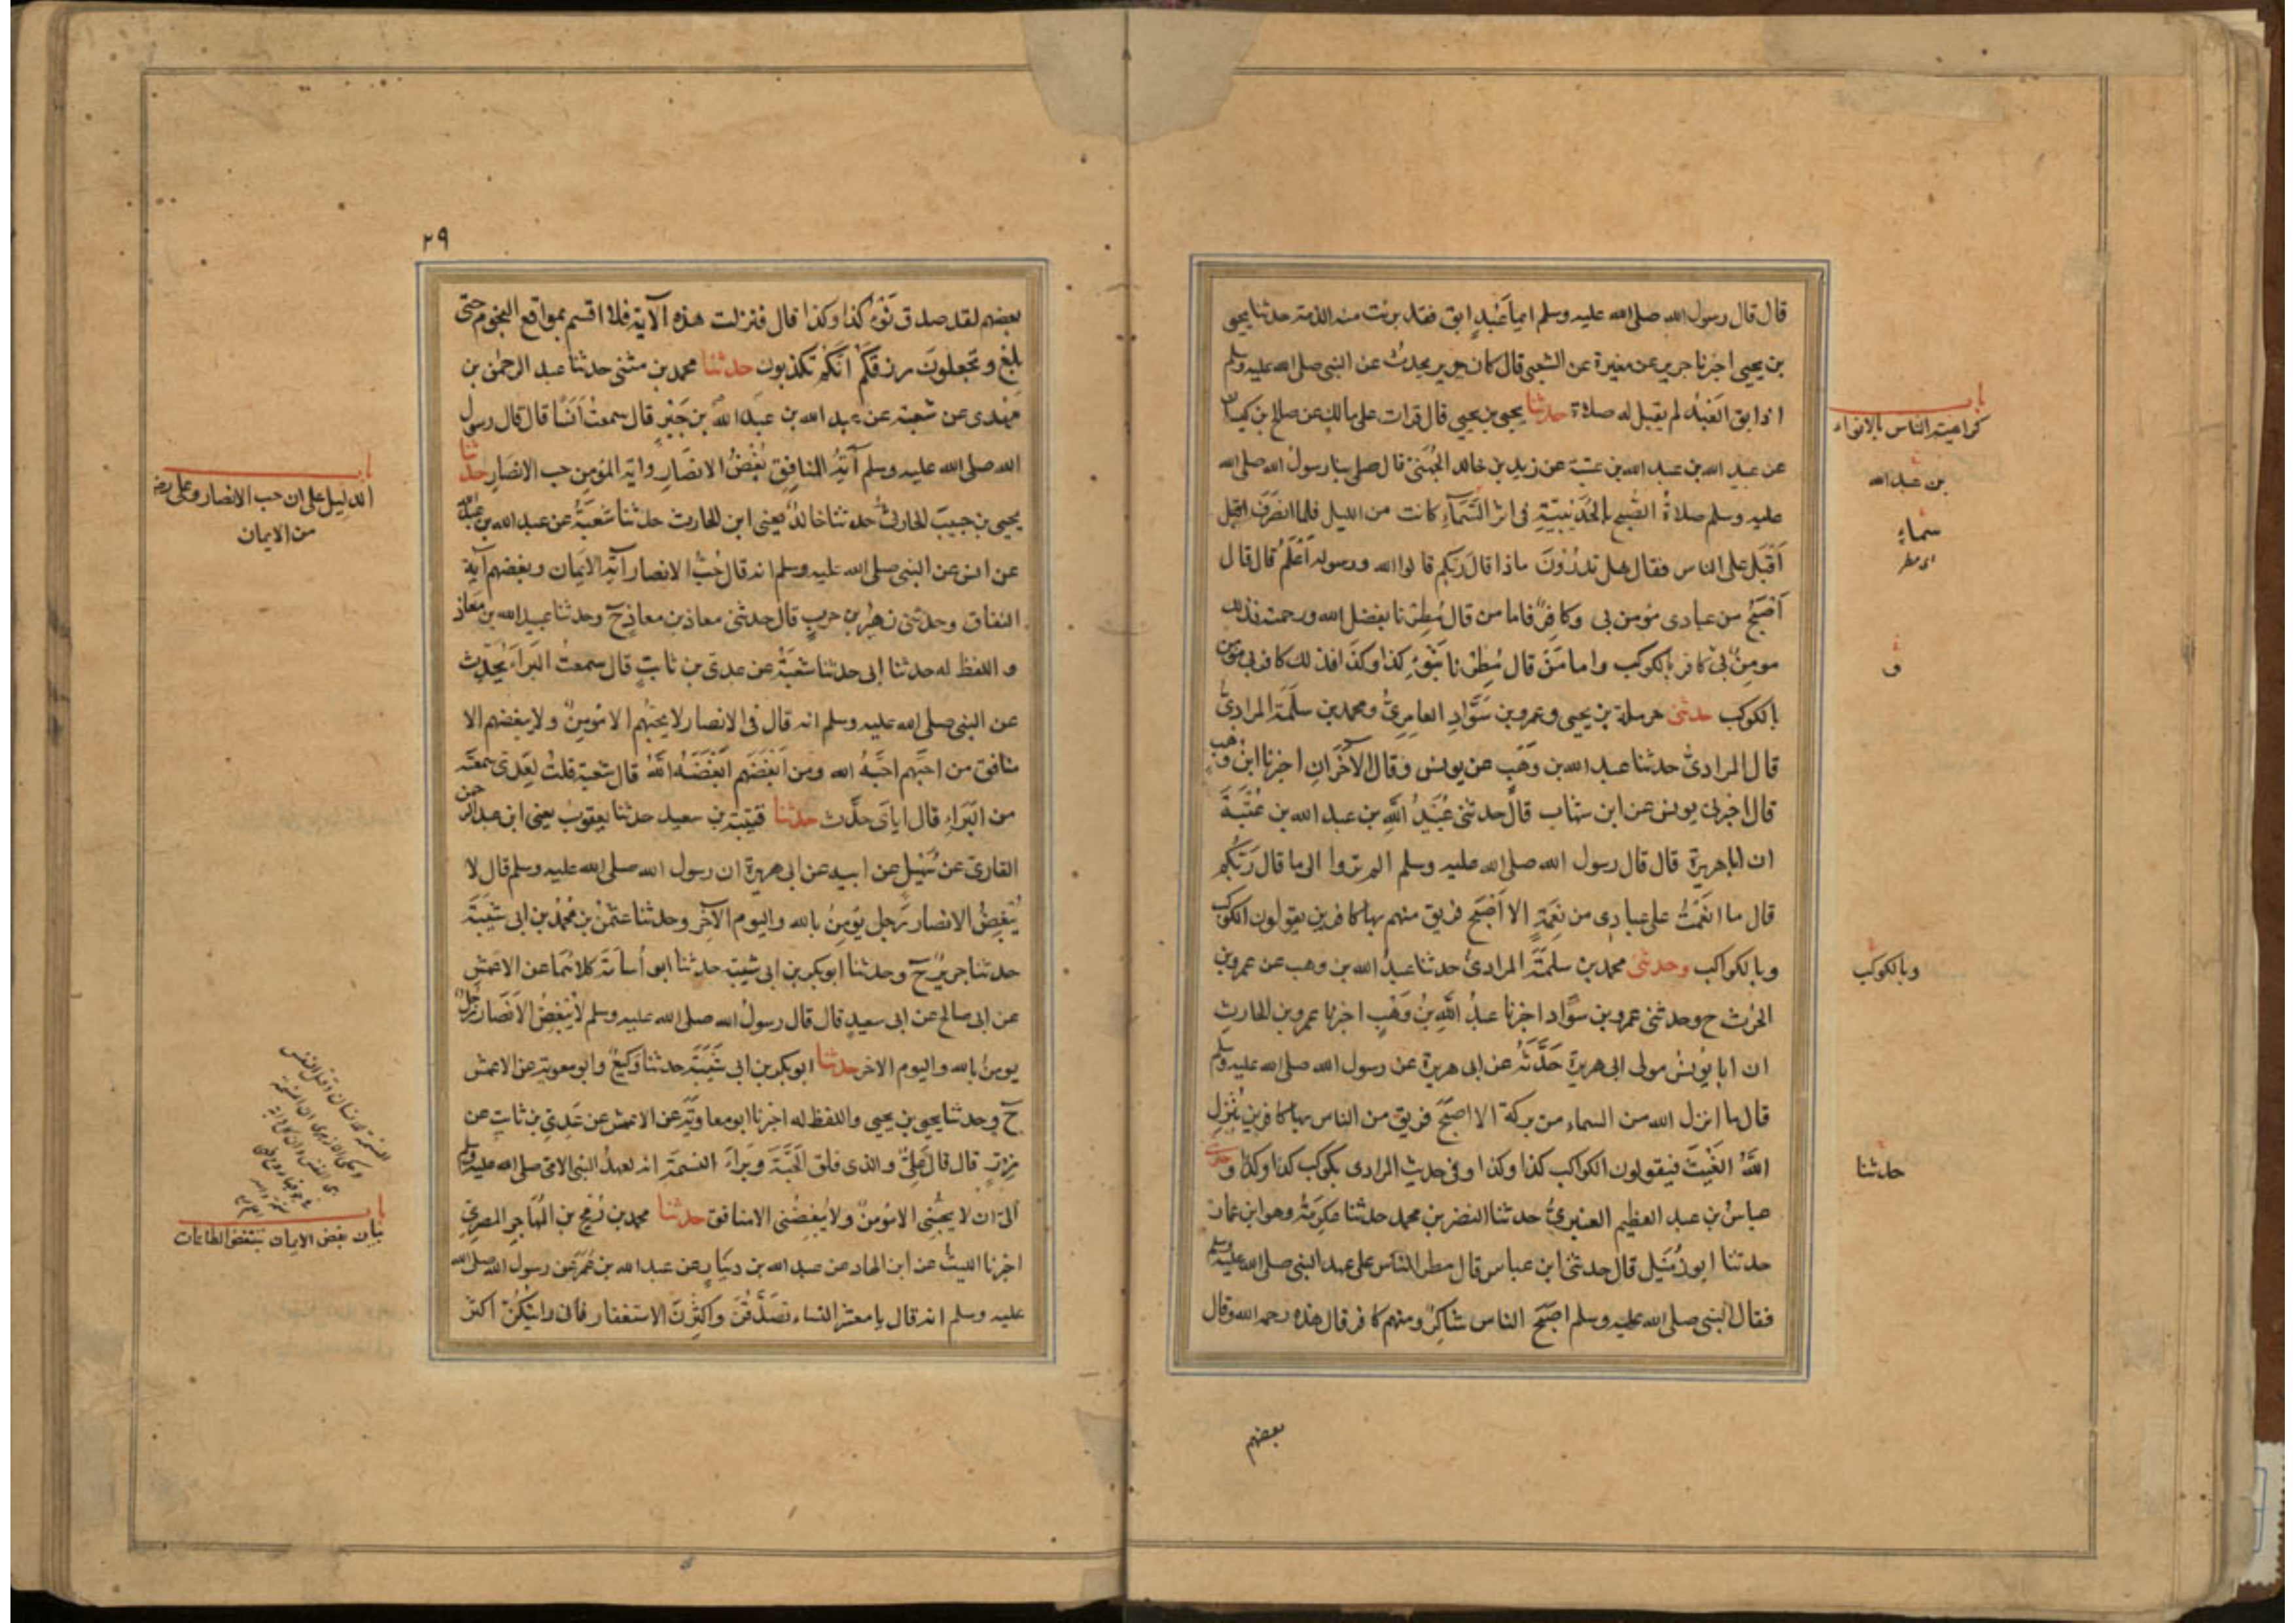 قال قال رسول الله صلى الله عليه وسلم ايما عَبْدٍ ابق فقد برئت منه الذمة حدثنا يحيى
بن يحيى اخبرنا جرير عن مغيرة عن الشعبى قال كان جرير يحدث عن النبى صلى الله عليه وسلم
اذا ابق العَبْدُ لم يقبل له صلاة حدثنا يحيى بن يحيى قال قرات على مالك عن صالح بن كيسان
عن عبيد الله بن عبد الله بن عتبة عن زيد بن خالد الجُهَنىّ قال صلى بنا رسولُ الله صلى الله
عليه وسلم صلاةُ الصُّبح بالحُدَيْبِيَّةِ فى اثر السَّمَآءِ كانت من الليل فلما انصَرَف اقبل
اَقبَل على الناس فقال هل تدرُوْنَ ماذا قال رَبكم قالوا الله ورسوله اَعْلَمُ قال قال
اَصْبَحُ من عبادى مؤمن بى وكافِرٌ فاما من قال مُطِرْنا بفضل الله ورحمته فذلك
مومِنٌ بى كافر بالكوكب واما مَنْ قال مُطِرْنا بِنَوْءِ كذا وكذا فذلك كافر بى مؤمن
بالكوكب حدثنى حرملة بن يحيى وعمرو بن سَوَّادِ العامِرىُّ ومحمد بن سَلَمَةَ المرادىُّ
قال المرادىُّ حدثنا عبد الله بن وَهْبٍ عن يونس وقال الآخَرَانِ اخبرنا ابنُ وَهب
قال اخبرنى يونس عن ابن شهاب قال حدثنى عُبَيْدُ اللّٰهِ بن عبد الله بن عُتْبَةَ
ان اباهريرة قال قال رسول الله صلى الله عليه وسلم الم تروا الى ما قال رَبُّكم
قال ما انعَمْتُ على عبادى من نِعْمَةٍ الا اَصْبَح فريق منهم بها كافرين يقولون الكوكب
وبالكواكب وحدثنى محمد بن سَلَمَةَ المرادىُّ حدثنا عبدُ الله بن وهب عن عمرو بن
الحرث ح وحدثنى عمرو بن سوَّاد اخبرنا عبدُ اللّٰهِ بْنُ وَهْبٍ اخبرنا عمرو بن الحارثِ
ان ابا يُونسُ مولى ابى هريرة حَدَّثَهُ عن ابى هريرة عن رسول الله صلى الله عليه وسلم
قال ما انزل الله من السماء من بركة الا اصبَحَ فريق من الناس بها كافرين يُنْزِل
اللّٰهُ الغَيْثَ فيقولون الكواكب كذا وكذا وفى حديث المرادى بكوكب كذا وكذا وحدثنى
عباسُ بن عبد العظيم العنبرىُّ حدثنا النضر بن محمد حدثنا عِكرِمَةُ وهو ابن عمار
حدثنا ابو زُمَيْل قال حدثنى ابن عباس قال مطر الناس على عهد النبى صلى الله عليه وسلم
فقال النبى صلى الله عليه وسلم اصبَحَ الناس شاكِرٌ ومنهم كافر قال هذه رحمة الله وقال
بعضهم
باب
كراهية الناس بالانواء
بن عبد الله
سماءِ
اى مطر
و
وبالكوكب
حدثنا
٢٩
بعضهم لقد صدق نَوْءُ كذا وكذا قال فنزلت هذه الآية فلا اقسم بمواقع النجوم حتى
بلغ وتجعلونَ رزقكم انَّكُم تكذبون حدثنا محمد بن مثنى حدثنا عبد الرحمٰن بن
مهدى عن شعبة عن عبد الله بن عَبد اللّٰه بن جَبْرٍ قال سمعتُ اَنَسًا قال قال رسول
الله صلى الله عليه وسلم آيَةُ المنافِقِ بُغْضُ الانصَارِ واية المؤمِن حب الانصَارِ حدثنا
يحيى بن حبيبَ الحارثىُّ حدثنا خالدٌ يعنى ابن الحارث حدثنا شعبَةُ عن عبد الله بن عبد الله
عن انس عن النبى صلى الله عليه وسلم انه قال حُبُّ الانصار آيَةُ الايَمان وبغضهم آية
النفاق وحدثنى زهَيْرُ بن حربٍ قال حدثنى معاذ بن معاذٍ ح وحدثنا عبيد الله بن مَعاذ
واللفظ له حدثنا ابى حدثنا شعبَةُ عن عدىّ بن ثابتٍ قال سمعتُ البَرآءَ يُحَدِّث
عن النبى صلى الله عليه وسلم انه قال فى الانصار لا يحبُّهم الا مُؤمِنٌ ولا يبغضهم الا
منافق من احبَّهم احبَّهُ الله ومن ابغَضَهم ابغَضَهُ اللّٰهُ قال شعبة قلتُ لِعَدىّ سمعتَه
من البَرآءِ قال اياىَ حدَّث حدثنا قتيبة بن سعيد حدثنا يعقوبُ يعنى ابن عبد الرحمن
القارىَّ عن سُهَيْلٍ عن ابيه عن ابى هريرة ان رسول الله صلى الله عليه وسلم قال لا
يُبْغِضُ الانصار رَجل يُؤمِنُ بالله واليوم الآخِر وحدثنا عثمٰنُ بن مُحمدُ بن ابى شَيْبَةَ
حدثنا جريرٌ ح وحدثنا ابوبكر بن ابى شيبة حدثنا ابو اُسامَة كلاهُمَا عن الاعمَشِ
عن ابى صالح عن ابى سعيدٍ قال قال رسولُ الله صلى الله عليه وسلم لا يُبْغِضُ الاَنصَارَ رَجُلٌ
يومنُ بالله واليوم الاخر حدثنا ابوبكر بن ابى شَيْبَةَ حدثنا وَكيعٌ وابو معوية عن الاعمش
ح وحدثنا يحيى بن يحيى واللفظ له اخبرنا ابو معاوِيَةَ عن الاعمش عن عَدِىّ بن ثابتٍ عن
زِرٍّ قال قال عَلِىٌّ والذى فلق الحَبَّةَ وَبَراَءَ النسمَةَ انه لعهدُ النبى الامّى صلى الله عليه وسلم
اَلىّ ان لا يحبَّنى الا مُؤمنٌ ولا يُبْغِضُنى الا منافق حدثنا محمد بن رُمْحِ بن المُهَاجِرِ المصرِىُّ
اخبرنا الليثُ عن ابن الهاد عن عبد الله بن دينارٍ عن عبد الله بن عُمَرَ عن رسول الله صلى الله
عليه وسلم انه قال يا معشر النساء تصَدَّقْنَ وَاكثِرْنَ الاستغفار فانى رايتكُنّ اكثر
باب
الدليل على ان حب الانصار وعلى رضـ
من الايمان
باب
بيان نقص الايمان بنقص الطاعات